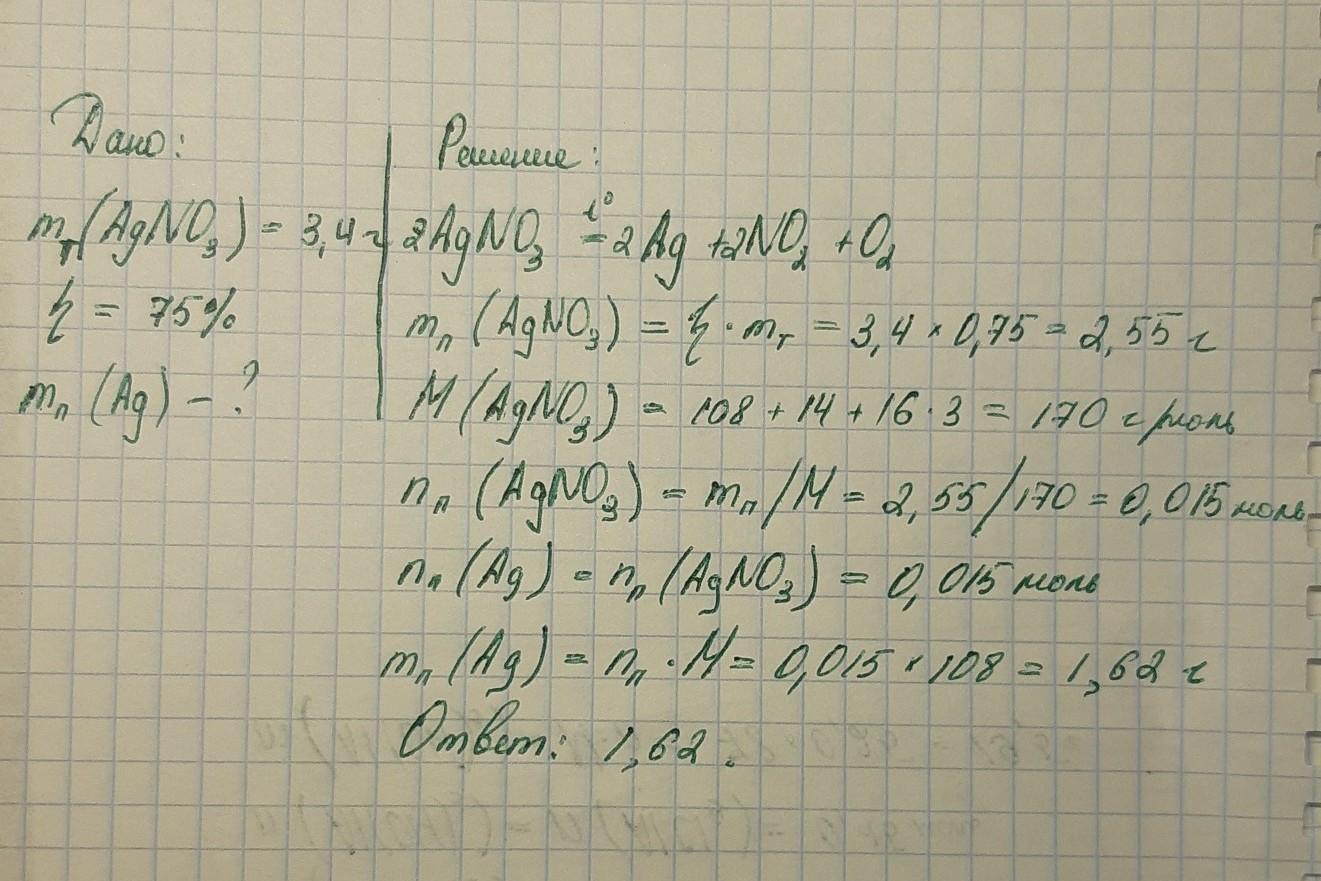 Дано:
m_т(AgNO₃) = 3,4 г
η = 75%
m_п (Ag) – ?
Решение:
2AgNO₃ =t° 2Ag + 2NO₂ + O₂
m_п (AgNO₃) = η · m_т = 3,4 × 0,75 = 2,55 г
M (AgNO₃) = 108 + 14 + 16 · 3 = 170 г/моль
n_п (AgNO₃) = m_п / M = 2,55/170 = 0,015 моль
n_п (Ag) = n_п (AgNO₃) = 0,015 моль
m_п (Ag) = n_п · M = 0,015 × 108 = 1,62 г
Ответ: 1,62.